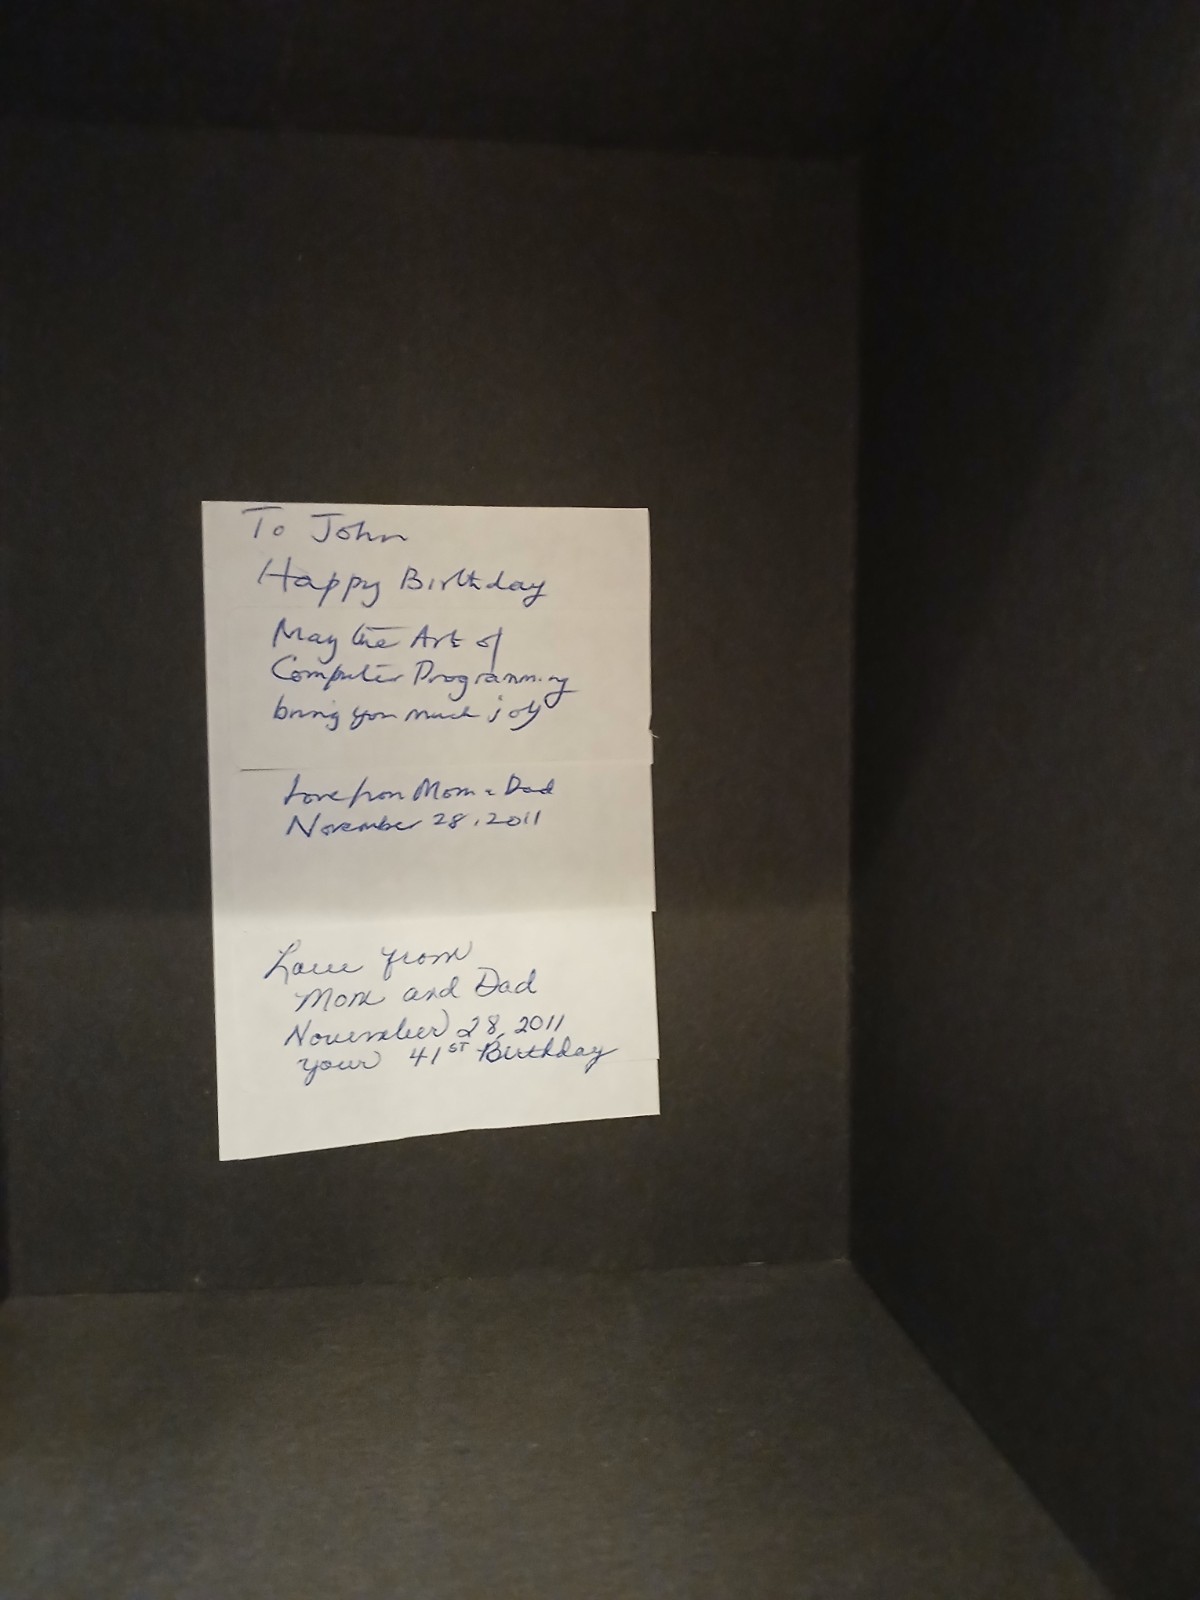 To John
Happy Birthday
May the Art of
Computer Programming
bring you much joy
Love from Mom & Dad
November 28, 2011
Love from
Mom and Dad
November 28, 2011
your 41ST Birthday